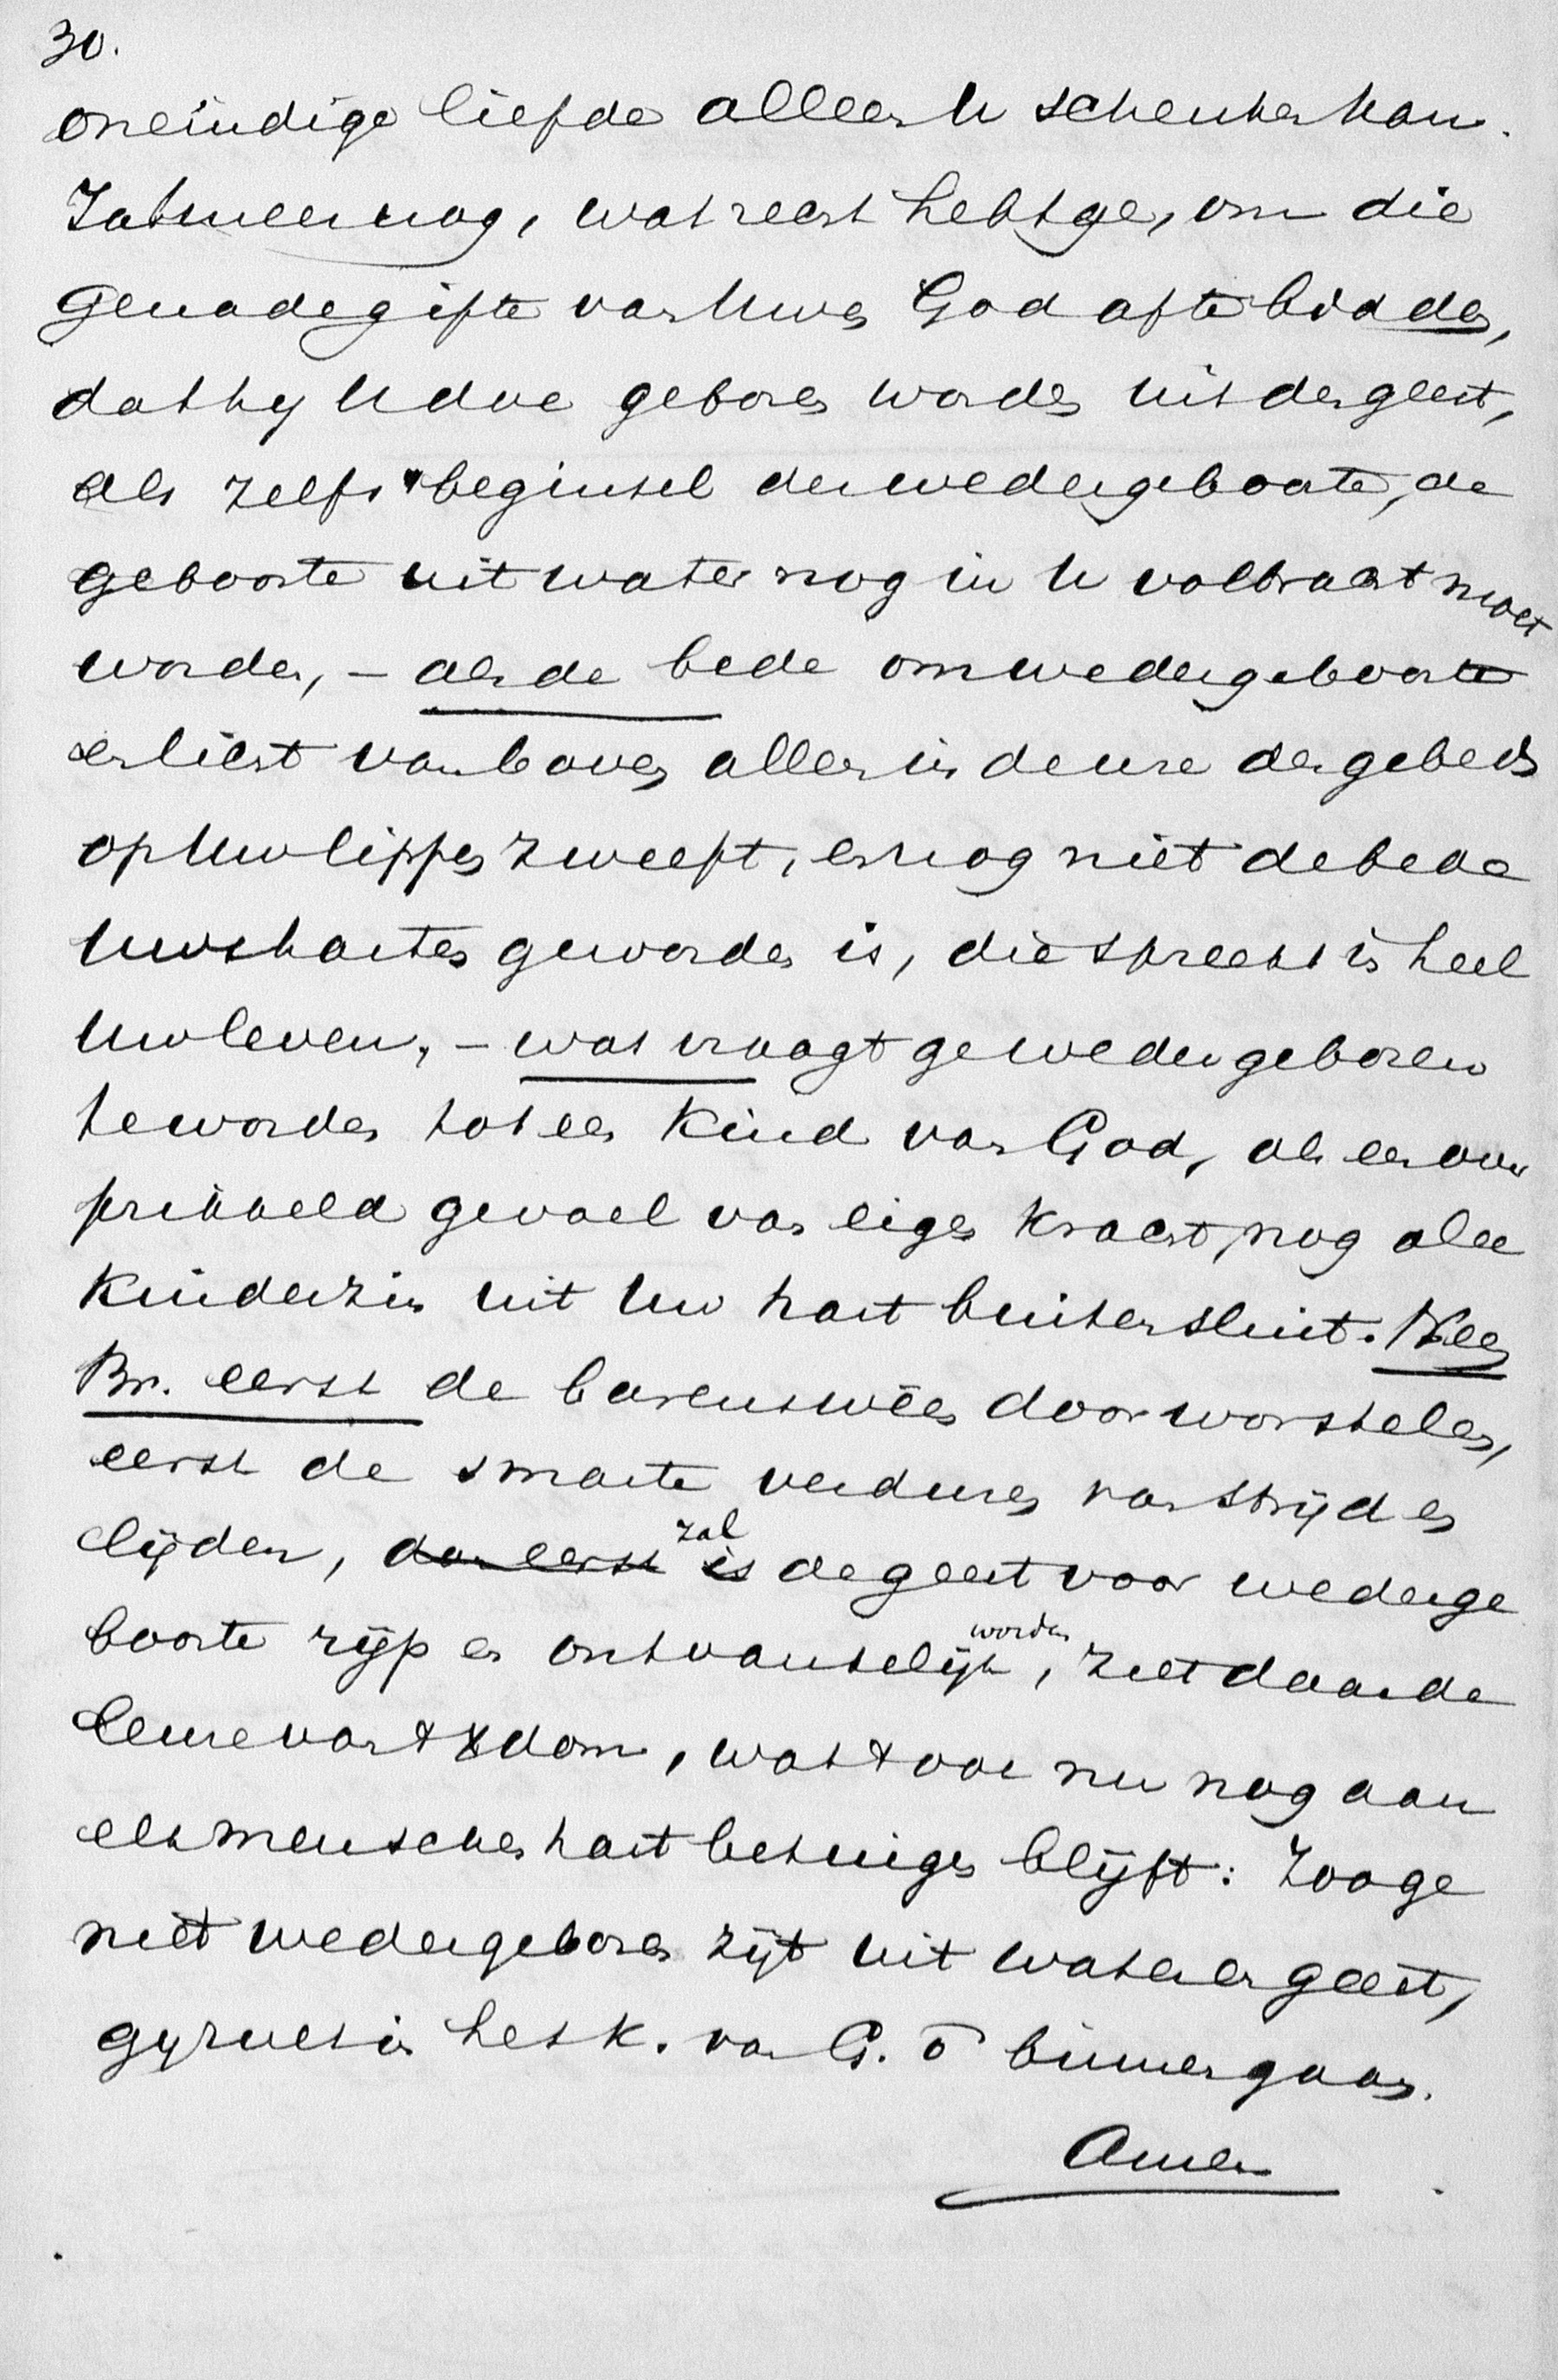 30.
oneindige liefde alleen U schenken kan.
Ja wat meer nog, wat recht hebt ge, om die
genadegifte van Uwen God af te bidden,
dat hij U doe geboren worden uit den geest,
als zelfs 't beginsel der wedergeboorte, de
geboorte uit water nog in U volbracht moet
worden, – als de bede om wedergeboorte
en licht van boven alleen in de ure des gebeds
op Uw lippen zweeft, en nog niet de bede
Uws harten geworden is, die spreekt in heel
Uw leven, – wat vraagt ge wedergeboren
te worden tot een Kind van God, als een over
prikkeld gevoel van eigen kracht, nog allen
Kinderzin uit Uw hart buitensluit. Neen
Br. eerst de barensweën doorworstelen,
eerst de smarte verduren van strijd en
lijden, dan eerst is zal de geest voor wederge
boorte rijp en ontvankelijk worden, ziet daar de
leure van 't Xdom, wat ook nu nog aan
elk menschenhart betuigen blijft: Zoo ge
niet wedergeboren zijt uit water en geest,
gij zult in het K. van G. õ binnengaan.
Amen